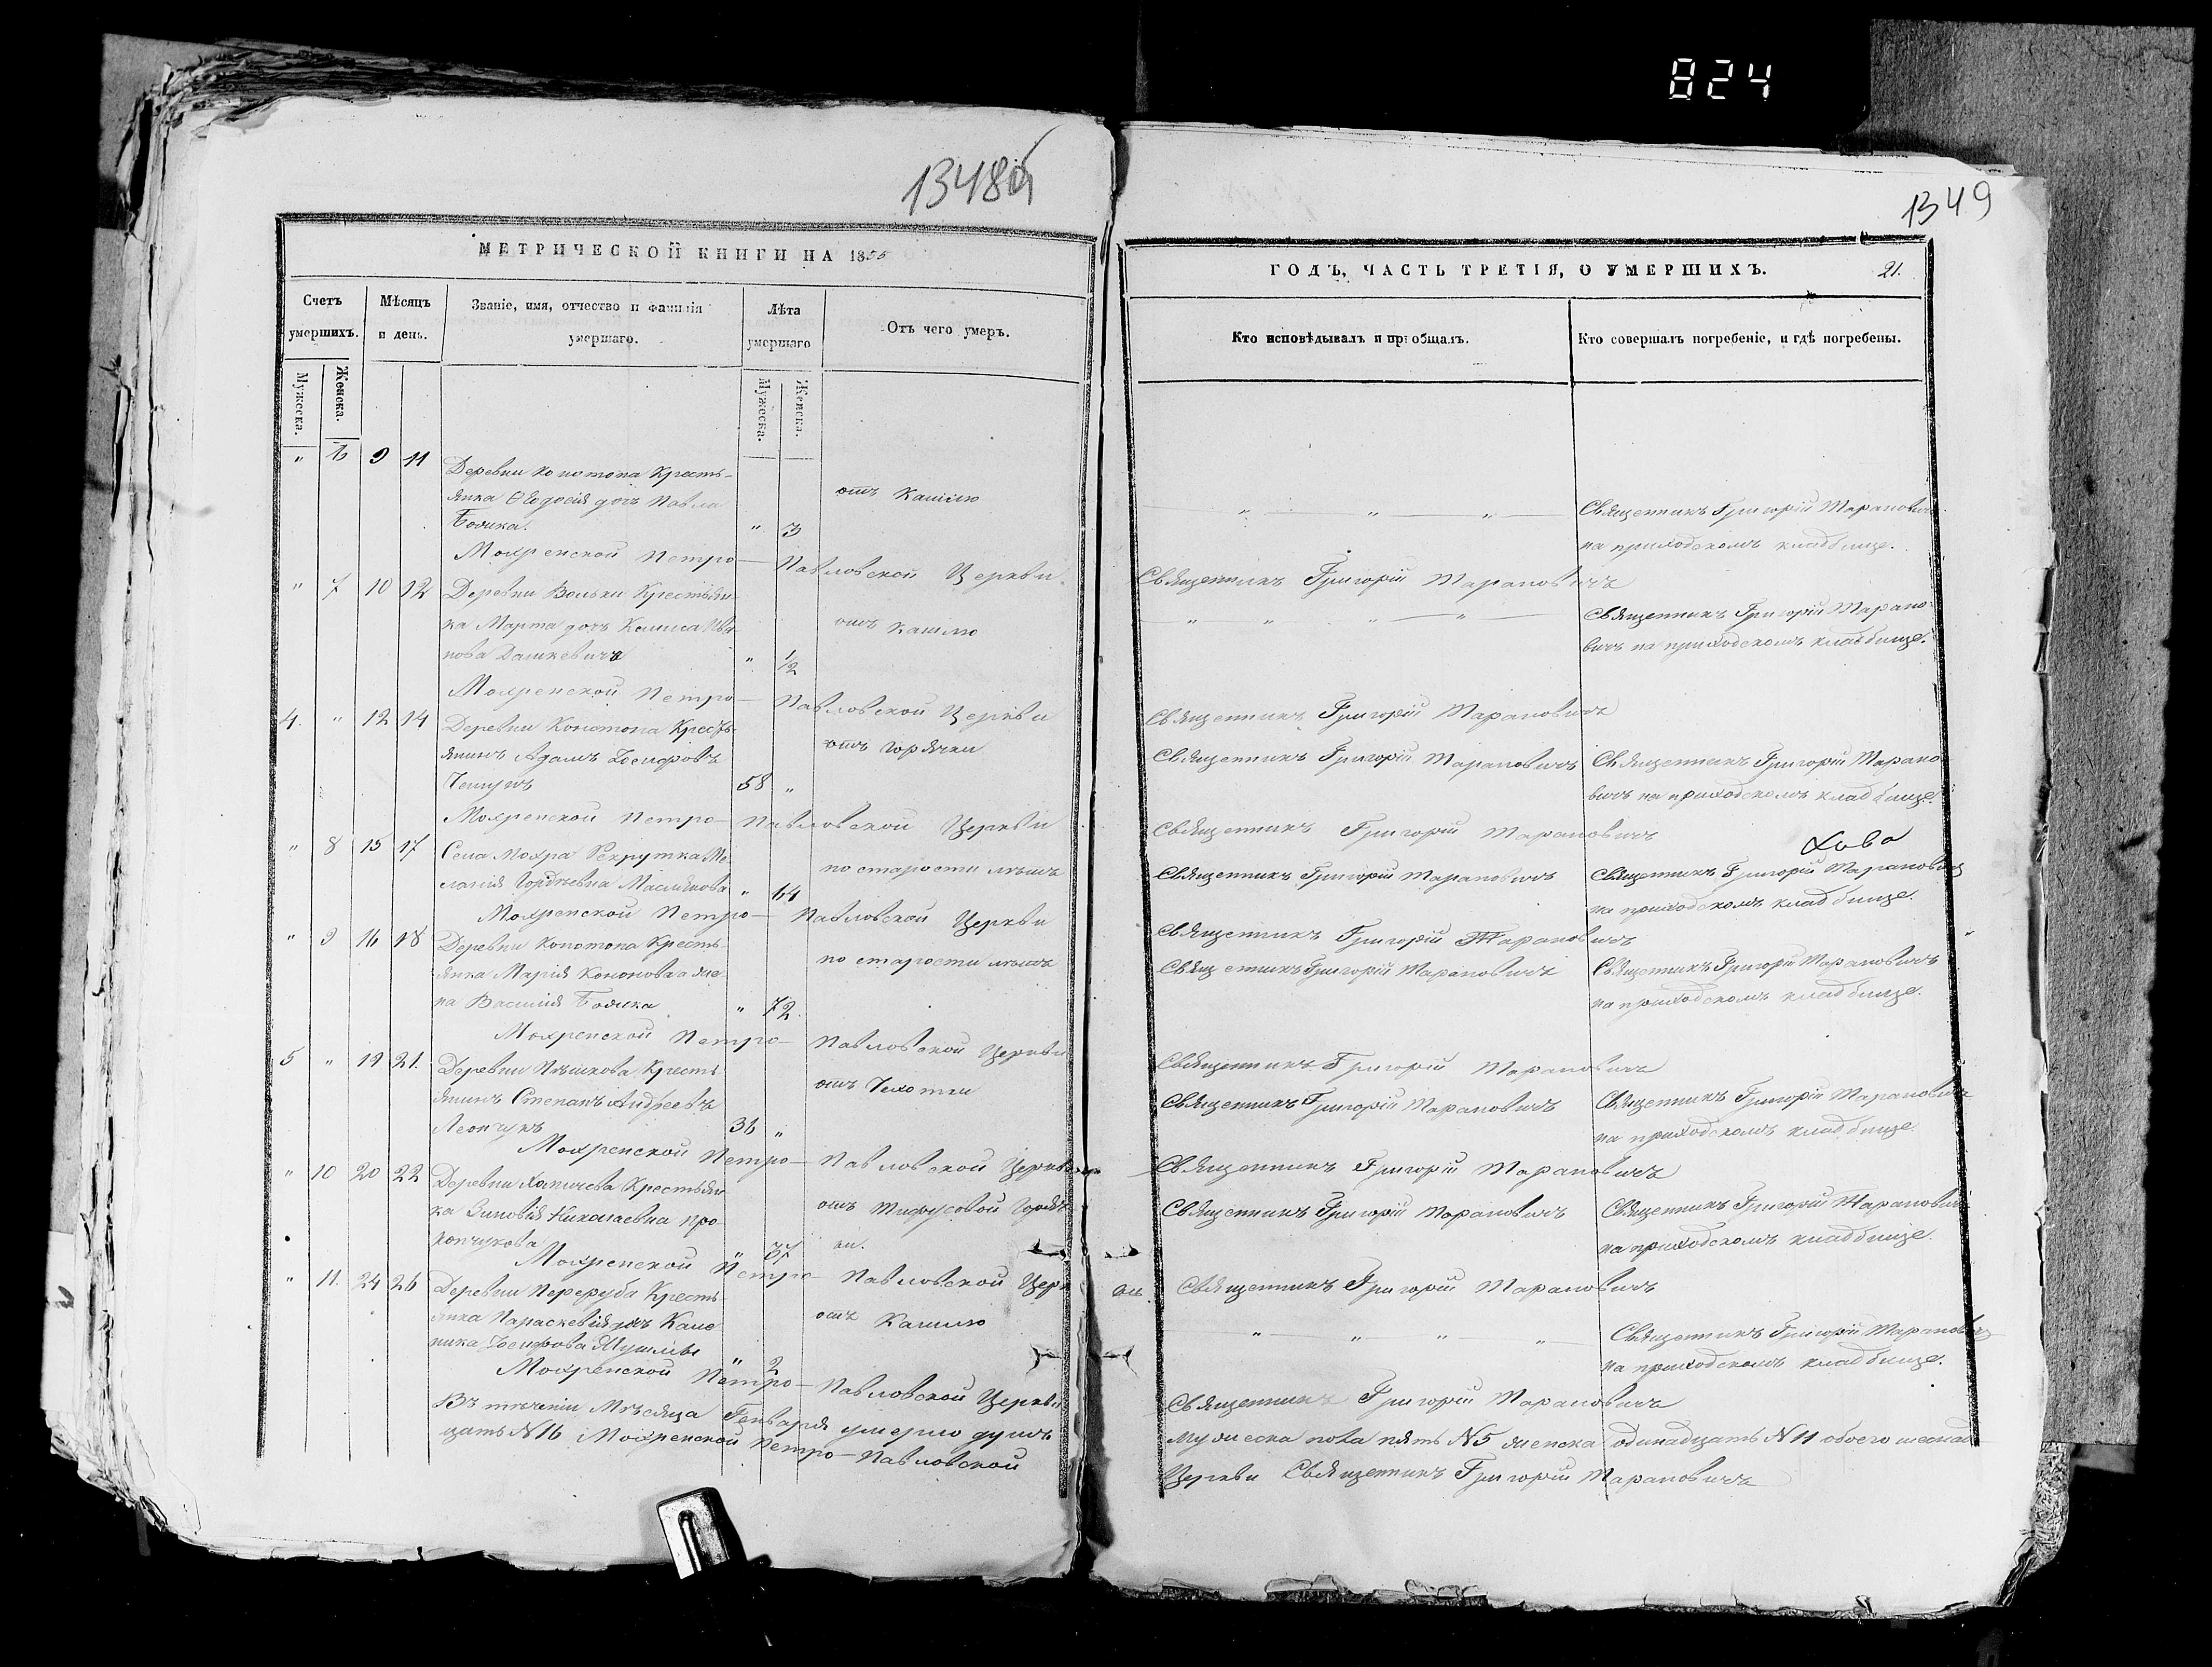 824
1348об
1349
МЕТРИЧЕСКОЙ КНИГИ НА 1855
ГОДЪ, ЧАСТЬ ТРЕТІЯ, О УМЕРШИХЪ.
21.
Счетъ умершихъ.
Мѣсяцъ и день.
Званіе, имя, отчество и фамилія умершаго.
Лѣта умершаго
Отъ чего умеръ.
Кто исповѣдывалъ и пріобщалъ.
Кто совершалъ погребеніе, и гдѣ погребены.
Мужеска.
Женска.
Мужеска.
Женска.
" 6 9 11
Деревни Конотопа Кресть-
янка Ѳеодосія дочь Павла
" 3
отъ Кашлю
Священникъ Григорій Тарановичъ
на приходскомъ кладбище.
Мохренской Петро-Павловской Церкви Священникъ Григорій Тарановичъ
" 7 10 12
Деревни Вольки Крестьян-
ка Марта дочь
нова Дашкевича
" 1/2
отъ кашлю
Священникъ Григорій Тарано-
вичъ на приходскомъ кладбище.
Мохренской Петро-Павловской Церкви Священникъ Григорій Тарановичъ
4. " 12 14
Деревни Конотопа Кресть-
янинъ Адамъ Іосифовъ
58 "
отъ горячки
Священникъ Григорій Тарановичъ
Священникъ Григорій Тарано-
вичъ на приходскомъ кладбище.
Мохренской Петро-Павловской Церкви Священникъ Григорій Тарановичъ
" 8 15 17
Села Мохра Рекрутка Ме-
ланія Гордѣевна Маслякова
" 64
по старости лѣтъ
Священникъ Григорій Тарановичъ
Священникъ Григорій Тарановичъ
на приходскомъ кладбище.
Мохренской Петро-Павловской Церкви Священникъ Григорій Тарановичъ
" 9 16 18
Деревни Конотопа Кресть-
янка Марія Кононова а же-
на Василія
" 72.
по старости лѣтъ
Священникъ Григорій Тарановичъ
Священникъ Григорій Тарановичъ
на приходскомъ кладбище.
Мохренской Петро-Павловской Церкви Священникъ Григорій Тарановичъ
5 " 19 21.
Деревни Крестъ-
янинъ Степанъ Андреевъ
Леончукъ
36 "
отъ Чехотки
Священникъ Григорій Тарановичъ
Священникъ Григорій Тарановичъ
на приходскомъ кладбище.
Мохренской Петро-Павловской Церкви Священникъ Григорій Тарановичъ
" 10 20 22
Деревни Крестьян-
ка Зиновія Николаевна Про-
копчукова
" 37
отъ тифусовой горяч-
ки.
Священникъ Григорій Тарановичъ
Священникъ Григорій Тарановичъ
на приходскомъ кладбище.
Мохренской Петро-Павловской Церкви Священникъ Григорій Тарановичъ
" 11. 24 26
Деревни Переруба Кресть-
янка Параскевія дочь
Іосифова
" 2
отъ Кашлю
Священникъ Григорій Тарановичъ
на приходскомъ кладбище.
Мохренской Петро-Павловской Церкви Священникъ Григорій Тарановичъ
Въ теченіи Мѣсяца Генваря умерло душъ мужеска пола пять N 5 женска одинадцать N 11 обоего шеснад-
цать N 16 Мохренской Петро-Павловской Церкви Священникъ Григорій Тарановичъ